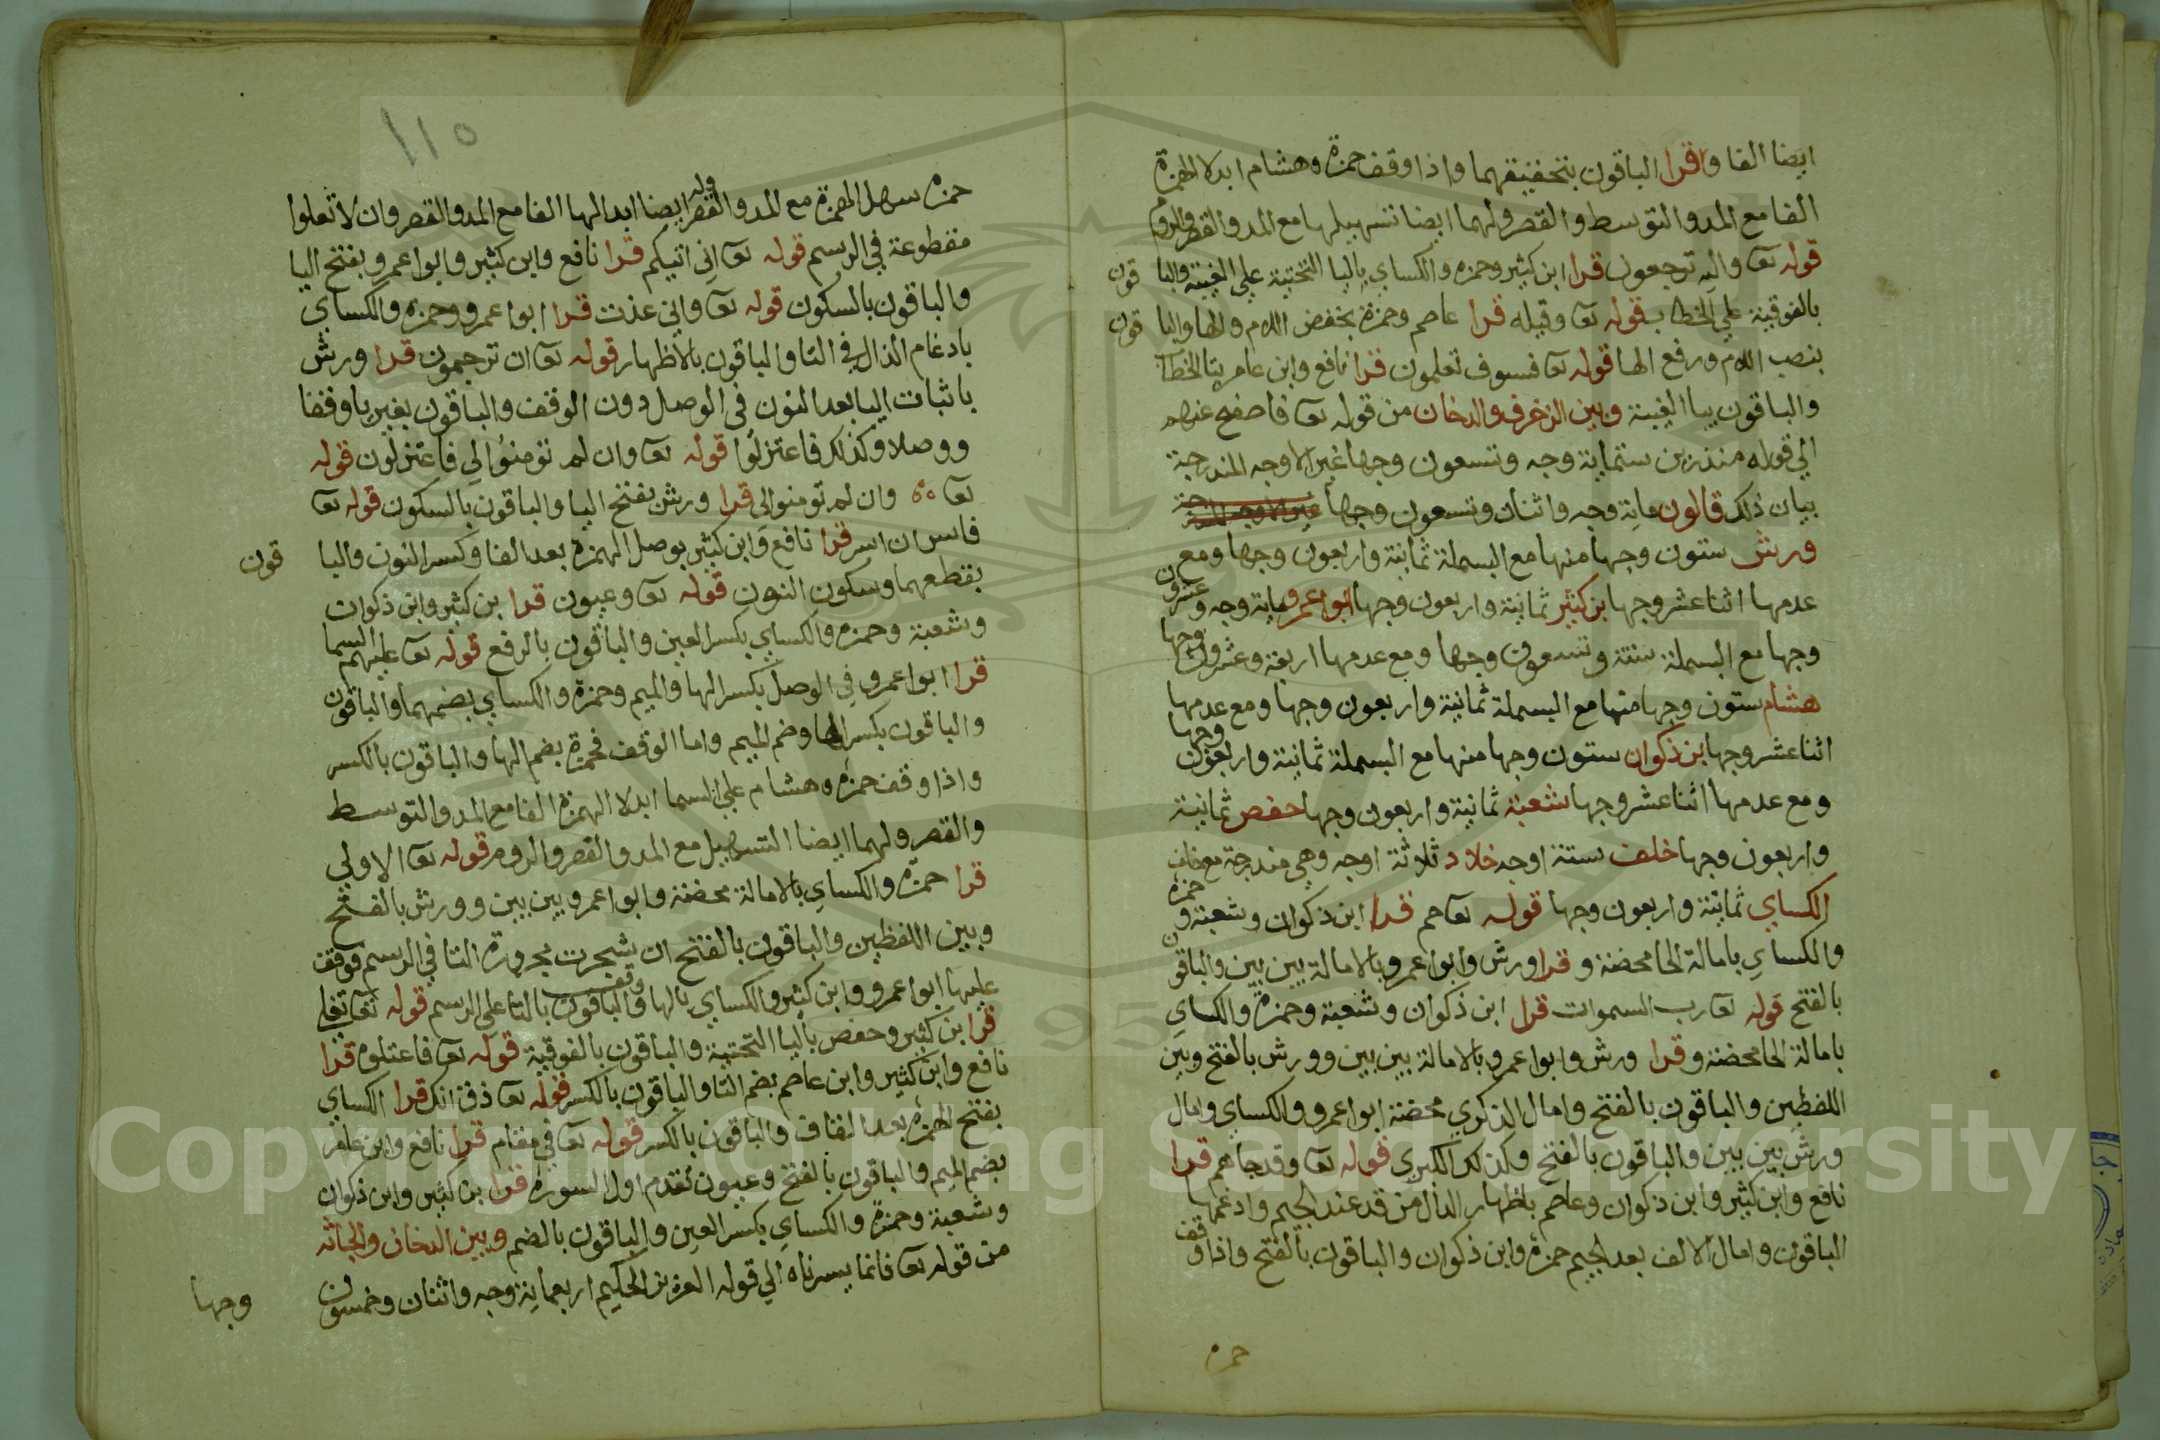 ايضا الفا وقرا الباقون بتحقيقهما واذا وقف حمزة وهشام ابدلا الهمزة
الفا مع المد والتوسط والقصر ولهما ايضا تسهيلها مع المد والقصر والروم
قوله تعا واليه ترجعون قرا ابن كثير وحمزه والكساي باليا التحتية علي الغيبة والبا قون
بالفوقية علي الخطاب قوله تعا وقيله قرا عاصم وحمزة بخفض اللام والها والبا قون
بنصب اللام ورفع الها قوله تعا فسوف تعلمون قرا نافع وابن عامر بتا الخطاب
والباقون بيا الغيبة وبين الزخرف والدخان من قوله تعا فاصفح عنهم
الي قوله منذرين ستماية وجه وتسعون وجها غير الاوجه المندرجة
بيان ذلك قالون ماية وجه واثنان وتسعون وجها غير الاوجه المندرجة
ورش ستون وجها منها مع البسملة ثمانية واربعون وجها ومع
عدمها اثنا عشر وجها بن كثير ثمانية واربعون وجها ابوا عمرو ماية وجه وعشرون
وجها مع البسملة ستة وتسعون وجها ومع عدمها اربعة وعشرون وجها
هشام ستون وجها منها مع البسملة ثمانية واربعون وجها ومع عدمها
اثنا عشر وجها بن ذكوان ستون وجها منها مع البسملة ثمانية واربعون وجها
ومع عدمها اثنا عشر وجها شعبة ثمانية واربعون وجها حفص ثمانية
واربعون وجها خلف ستة اوجه خلاد ثلاثة اوجه وهي مندرجة مع خلف
الكساي ثمانية واربعون وجها قوله تعا حم قرا ابن ذكوان وشعبة وحمزة
والكساي بامالة الحا محضة وقرا ورش وابوا عمرو بالامالة بين بين والباقون
بالفتح قوله تعا رب السموات قرا ابن ذكوان وشعبة وحمزة والكساي
بامالة الحا محضة وقرا ورش وابوا عمرو بالامالة بين بين وورش بالفتح وبين
اللفظين والباقون بالفتح وامال الذكري محضة ابوا عمرو والكساي وامال
ورش بين بين والباقون بالفتح وكذلك الكبري قوله تعا وقد جاهم قرا
نافع وابن كثير وابن ذكوان وعاصم باظهار الدال من قد عند الجيم وادغمها
الباقون وامال الالف بعد الجيم حمزة وابن ذكوان والباقون بالفتح واذا وقف
حمزه
١١٥
حمزه سهل الهمزة مع المد والقصر وله ايضا ابدالها الفا مع المد والقصر وان لا تعلوا
مقطوعة في الرسم قوله تعا اني اتيكم قرا نافع وابن كثير وابوا عمرو بفتح اليا
والباقون بالسكون قوله تعا واني عذت قرا ابوا عمرو وحمزه والكساي
بادغام الذال في التا والباقون بالاظهار قوله تعا ان ترجمون قرا ورش
باثبات اليا بعد النون في الوصل دون الوقف والباقون بغير يا وقفا
ووصلا وكذلك فاعتزلوا قوله تعا وان لم تومنوا لي فاعتزلون قوله
تعا وان لم تومنوا لي قرا ورش بفتح اليا والباقون بالسكون قوله تعا
فاسر ان اسر قرا نافع وابن كثير بوصل الهمزة بعد الفا وكسر النون والبا قون
بقطعهما وسكون النون قوله تعا وعيون قرا بن كثير وابن ذكوان
وشعبة وحمزه والكساي بكسر العين والباقون بالرفع قوله تعا عليهم السما
قرا ابوا عمرو في الوصل بكسر الها والميم وحمزة والكساي بضمهما والباقون
والباقون بكسر الها وضم الميم واما الوقف فحمزة بضم الها والباقون بالكسر
واذا وقف حمزه وهشام علي السما ابدلا الهمزة الفا مع المد والتوسط
والقصر ولهما ايضا التسهيل مع المد والقصر والروم قوله تعا الاولي
قرا حمزه والكساي بالامالة محضة وابوا عمرو بين بين وورش بالفتح
وبين اللفظين والباقون بالفتح ان شجرت مجرورة التا في الرسم فوقف
عليها ابوا عمرو وابن كثير والكساي بالها ووقف الباقون بالتا علي الرسم قوله تعا تغلي
قرا بن كثير وحفص باليا التحتية والباقون بالفوقية قوله تعا فاعتلوه قرا
نافع وابن كثير وابن عاصم بضم التا والباقون بالكسر قوله تعا ذق انك قرا الكساي
بفتح الهمزة بعد القاف والباقون بالكسر قوله تعا في مقام قرا نافع وابن عامر
بضم الميم والباقون بالفتح وعيون تقدم اول السورة قرا بن كثير وابن ذكوان
وشعبة وحمزة والكساي بكسر العين والباقون بالضم وبين الدخان والجاثه
من قوله تعا فانما يسرناه الي قوله العزيز الحكيم اربعماية وجه واثنان وخمسون
وجها
Copyright © King Saud University